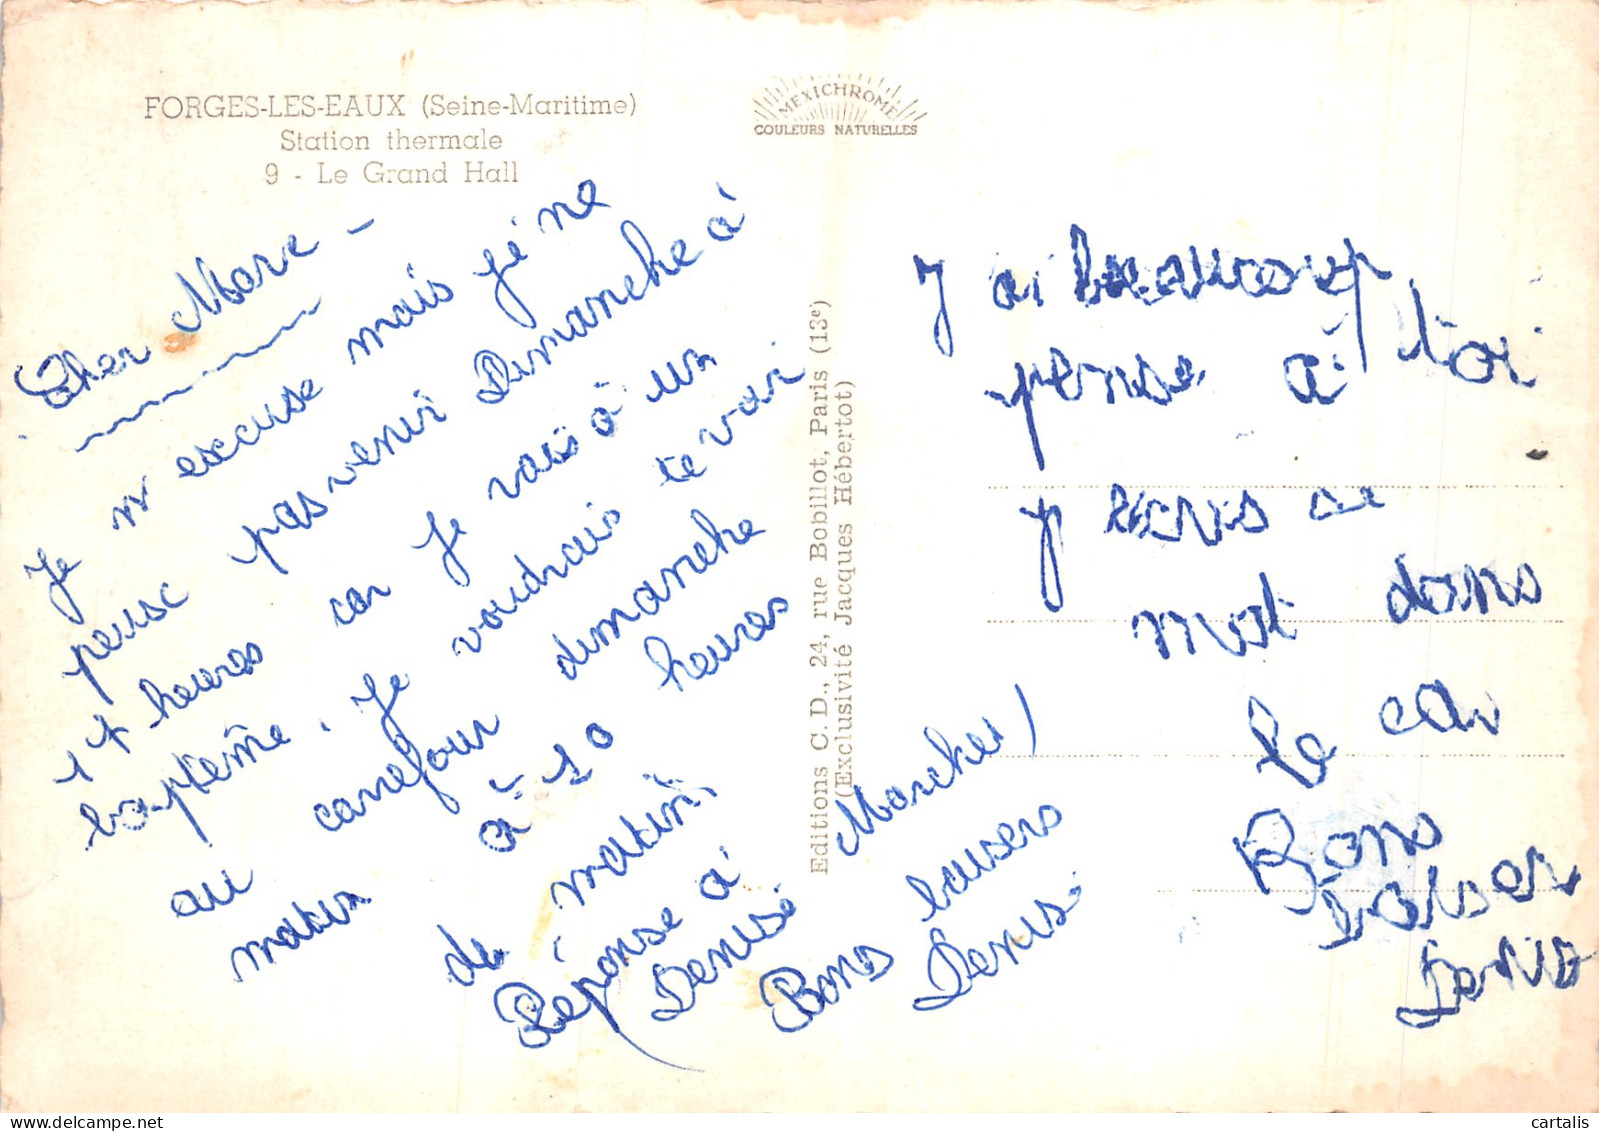 FORGES-LES-EAUX (Seine-Maritime)
Station thermale
9 - Le Grand Hall
MEXICHROME
COULEURS NATURELLES
Editions C. D., 24, rue Bobillot, Paris (13e)
(Exclusivité Jacques Hébertot)
Cher Marc -
Je m excuse mais je ne
peusc pas venir Dimanche à
17 heures car Je vais à un
baptême. Je voudrais te voir
au carrefour dimanche
matin à 10 heures
de matin.
Réponse à
Denise Marcher)
Bons baisers
Denise
J ai beaucoup
pense à toi
J ecris ce
mot dans
le car
Bons
baiser
Denise
cartalis